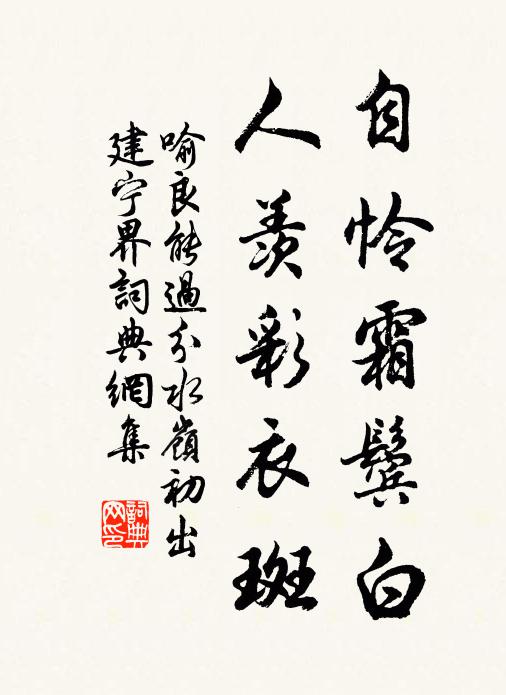 自怜霜鬓白
人羨彩衣斑
喻良能過分水嶺初出
建宁界詞典網集
詞典网印